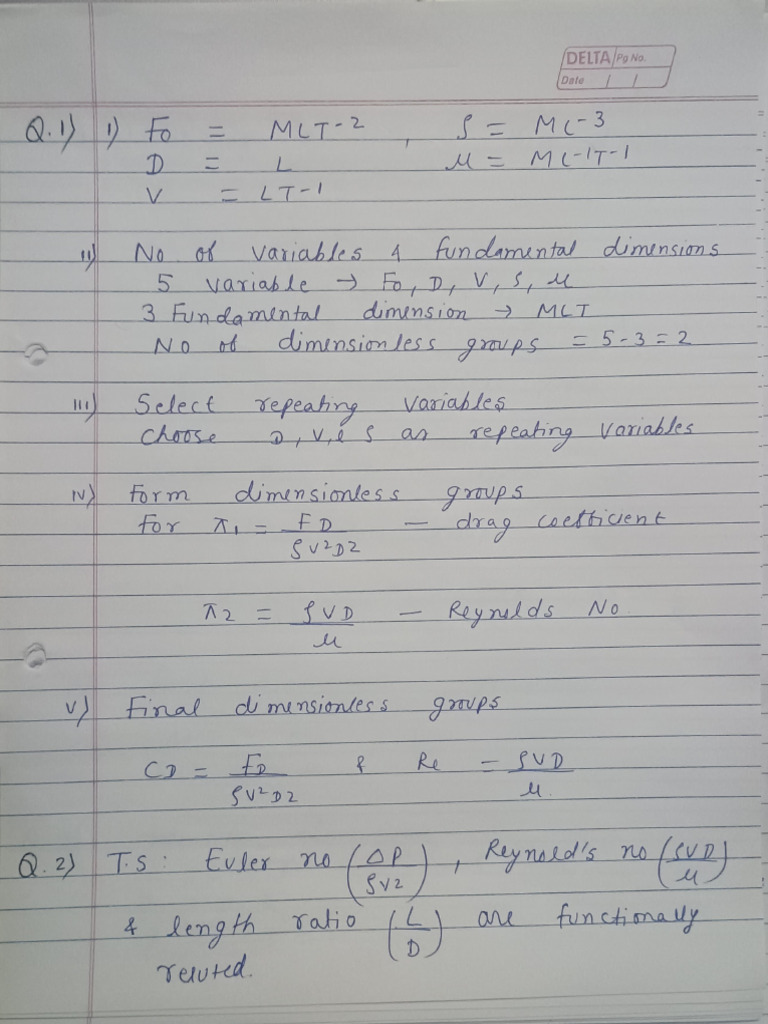 DELTA Pg No.
Date / /
Q.1) i) FD = MLT-2 , ρ = ML-3
D = L μ = ML-1T-1
V = LT-1
ii) No of variables & fundamental dimensions
5 variable → FD, D, V, ρ, μ
3 Fundamental dimension → MLT
No of dimensionless groups = 5-3 = 2
iii) Select repeating variables
choose D, V, & ρ as repeating variables
iv) Form dimensionless groups
for π1 = FD / ρV²D2 — drag coefficient
π2 = ρVD / μ — Reynolds No
v) Final dimensionless groups
CD = FD / ρV²D2 & Re = ρVD / μ
Q.2) T.S : Euler no (ΔP / ρV2) , Reynold's no (ρVD / μ)
& length ratio (L / D) are functionally
related.